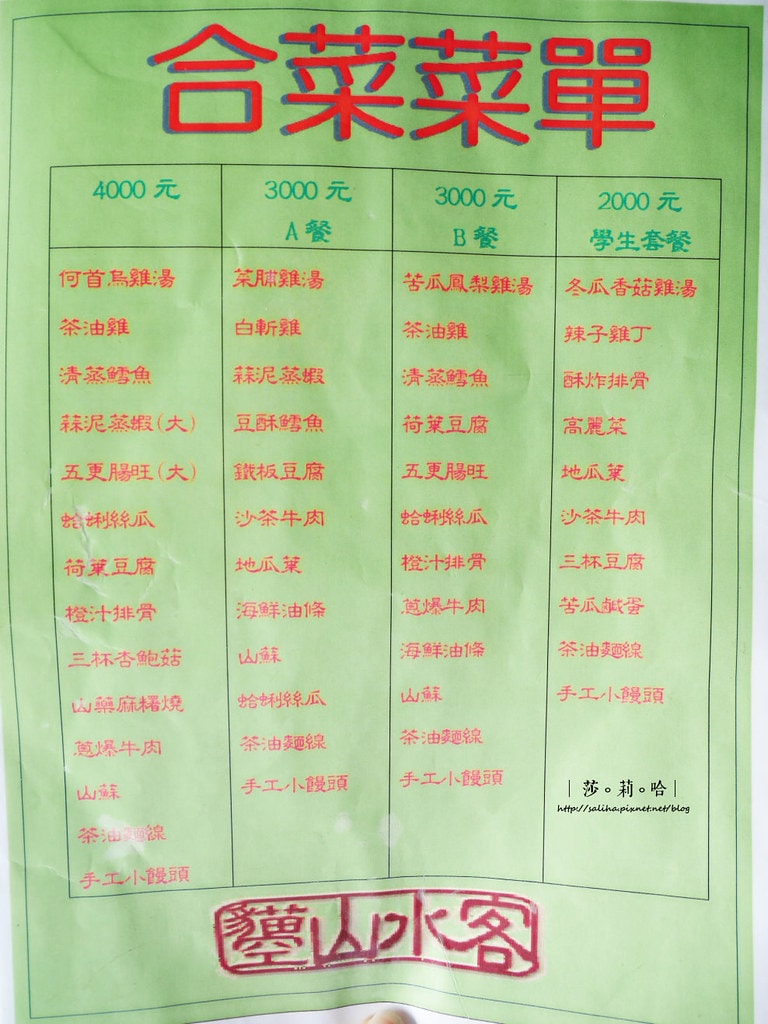 合菜菜單
4000 元
何首烏雞湯
茶油雞
清蒸鱈魚
蒜泥蒸蝦(大)
五更腸旺(大)
蛤蜊絲瓜
荷葉豆腐
橙汁排骨
三杯杏鮑菇
山藥麻糬燒
蔥爆牛肉
山蘇
茶油麵線
手工小饅頭
3000 元
A 餐
菜脯雞湯
白斬雞
蒜泥蒸蝦
豆酥鱈魚
鐵板豆腐
沙茶牛肉
地瓜葉
海鮮油條
山蘇
蛤蜊絲瓜
茶油麵線
手工小饅頭
3000 元
B 餐
苦瓜鳳梨雞湯
茶油雞
清蒸鱈魚
荷葉豆腐
五更腸旺
蛤蜊絲瓜
橙汁排骨
蔥爆牛肉
海鮮油條
山蘇
茶油麵線
手工小饅頭
2000 元
學生套餐
冬瓜香菇雞湯
辣子雞丁
酥炸排骨
高麗菜
地瓜葉
沙茶牛肉
三杯豆腐
苦瓜鹹蛋
茶油麵線
手工小饅頭
|莎。莉。哈|
http://saliha.pixnet.net/blog
貓空山水客